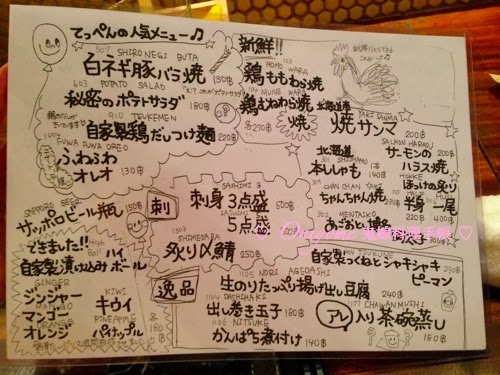 てっぺんの人気メニュー♫
507 SHIRONEGI BUTA
白ネギ豚バラ焼 150฿
603 POTATO SALAD
秘密のポテトサラダ 180฿
910 TSUKEMEN
自家製鶏だしつけ麺 220฿
FUWA FUWA OREO
ふわふわ
オレオ 130฿
新鮮!!
MOMO WARA
鶏ももわら焼
104 MUNE WARA
鶏むねわら焼
各270฿
北海道産
焼
YAKI SANMA
焼サンマ
北海道
301 SHISHAMO
本ししゃも 140฿
SALMON HARASU
サーモンの
ハラス焼 180฿
CHAN CHAN YAKI
ちゃんちゃん焼
HOKKE
ほっけの炙り
半身 一尾
220฿ 400฿
MENTAIKO
SAPPORO BEER
サッポロビール瓶 150฿
刺
SASHIMI 3
刺身 3点盛
SASHIMI 5
5点盛
SHIMESABA
炙り〆鯖 250฿
できました!!
High Ball
ハイ
自家製漬け込みボール
GINGER
ジンジャー
KIWI
キウイ
MANGO
マンゴー
ORANGE
オレンジ
PINEAPPLE
パイナップル
逸品
1105 NORI AGEDASHI
生のりたっぷり揚げ出し豆腐 240฿
1104 DASHIMAKI
出し巻き玉子 180฿
1106 NITSUKE
かんぱち煮付け 140฿
自家製つくねとシャキシャキ
ピーマン
1107 CHAWANMUSHI
アレ入り茶碗蒸し
180฿